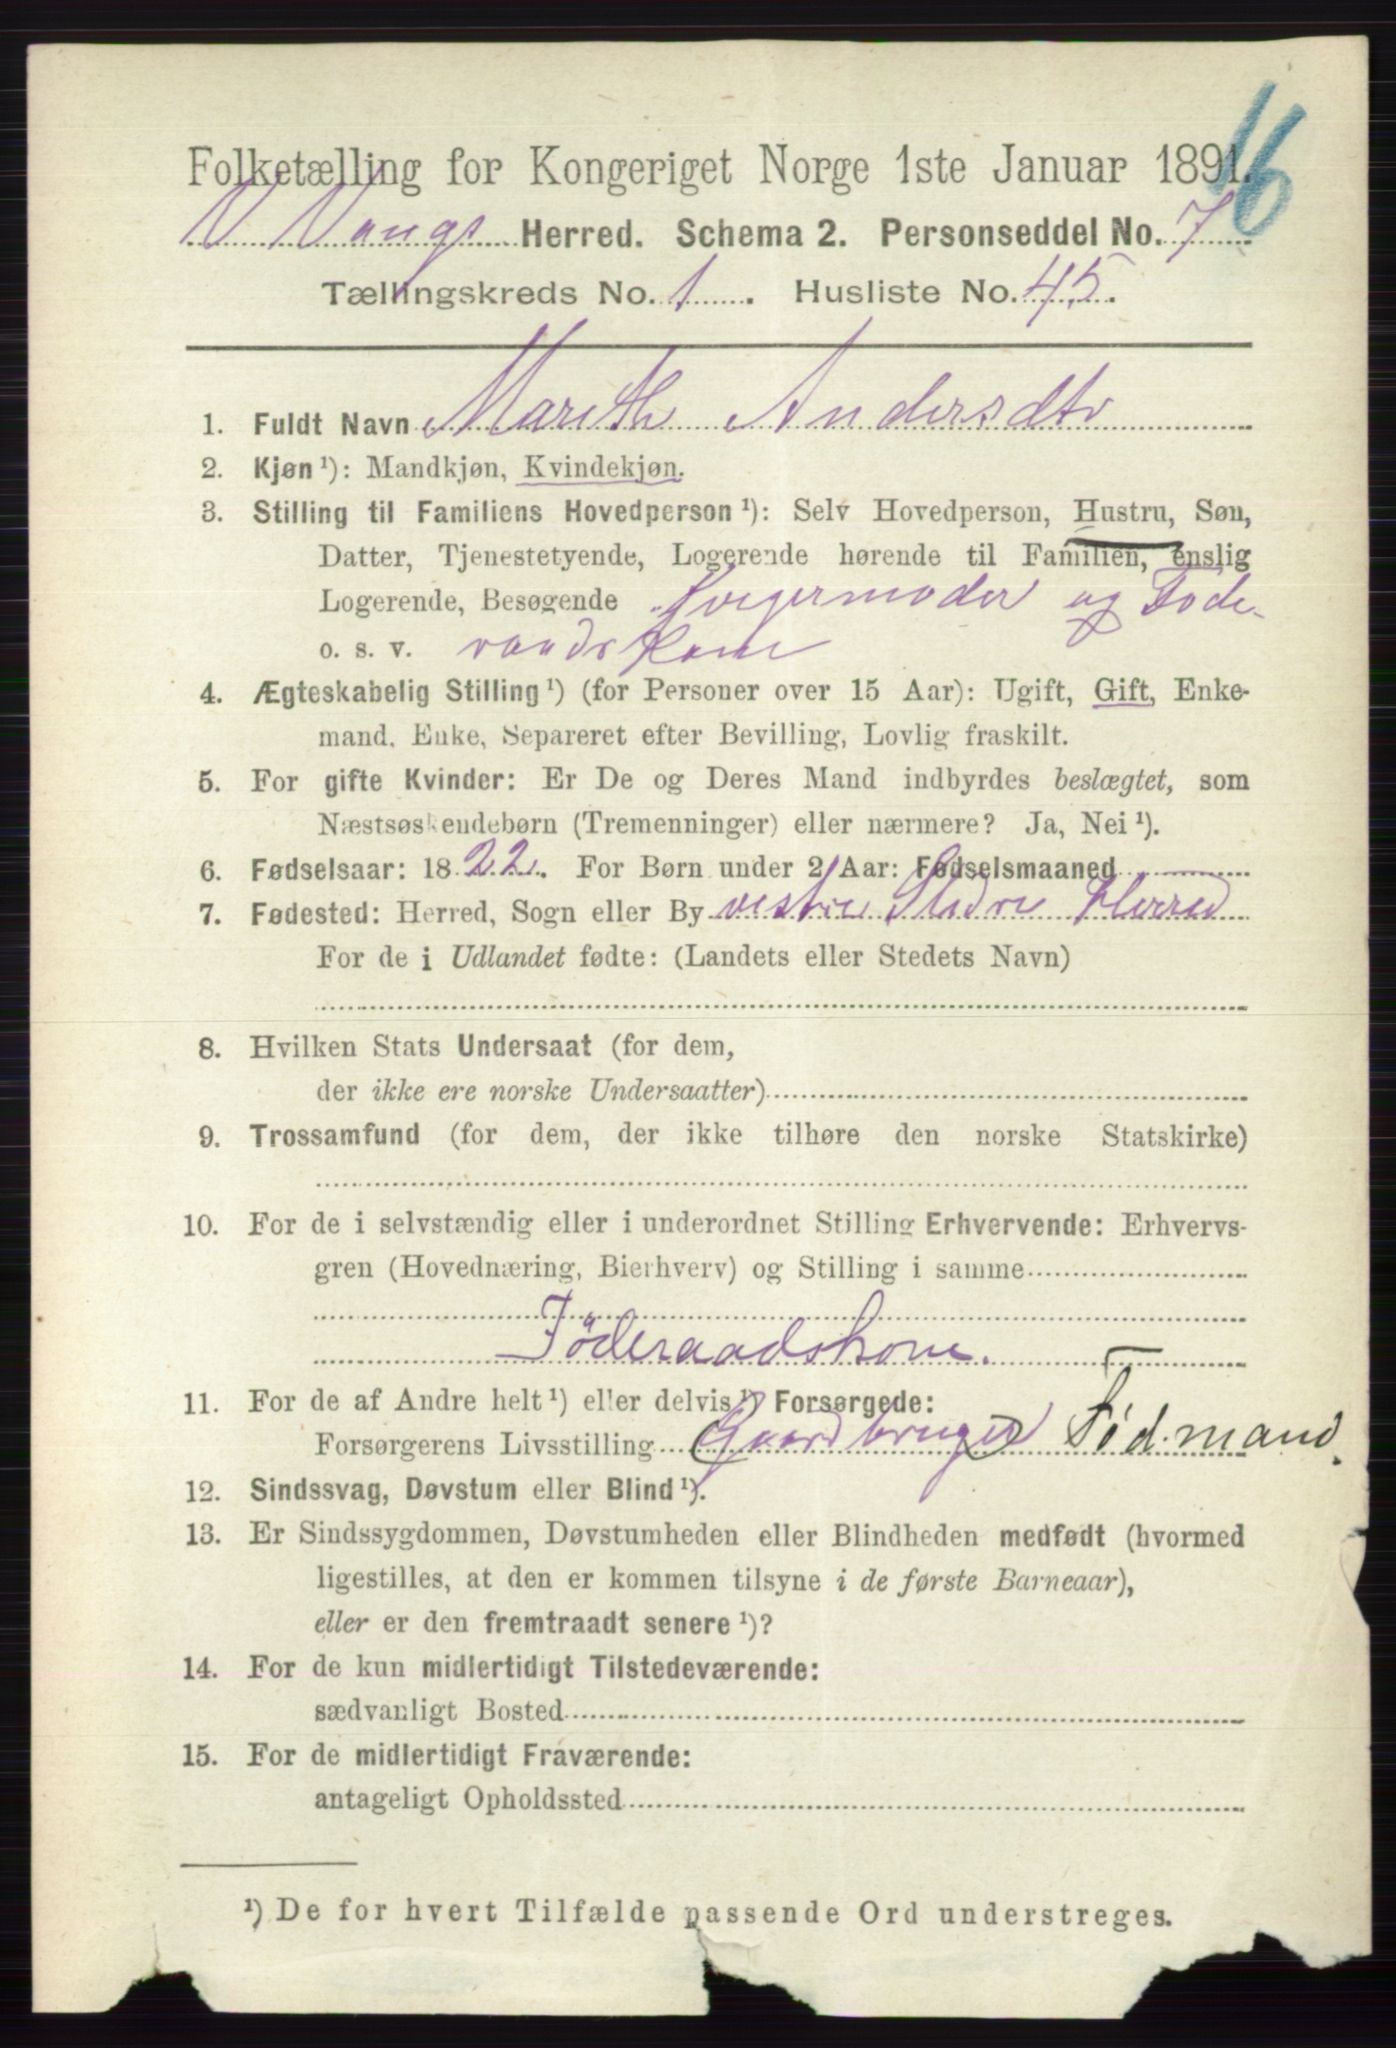 16
Folketælling for Kongeriget Norge 1ste Januar 1891.
V Vangs Herred. Schema 2. Personseddel No. 7
Tællingskreds No. 1. Husliste No. 45.
1. Fuldt Navn Marith Andersdtr
2. Kjøn ¹): Mandkjøn, Kvindekjøn.
3. Stilling til Familiens Hovedperson ¹): Selv Hovedperson, Hustru, Søn,
Datter, Tjenestetyende, Logerende hørende til Familien, enslig
Logerende, Besøgende Svigermoder og Føde-
o. s. v. raadskone
4. Ægteskabelig Stilling ¹) (for Personer over 15 Aar): Ugift, Gift, Enke-
mand, Enke, Separeret efter Bevilling, Lovlig fraskilt.
5. For gifte Kvinder: Er De og Deres Mand indbyrdes beslægtet, som
Næstsøskendebørn (Tremenninger) eller nærmere? Ja, Nei ¹).
6. Fødselsaar: 1822. For Børn under 2 Aar: Fødselsmaaned
7. Fødested: Herred, Sogn eller By vestre Slidre Herred
For de i Udlandet fødte: (Landets eller Stedets Navn)
8. Hvilken Stats Undersaat (for dem,
der ikke ere norske Undersaatter)
9. Trossamfund (for dem, der ikke tilhøre den norske Statskirke)
10. For de i selvstændig eller i underordnet Stilling Erhvervende: Erhvervs-
gren (Hovednæring, Bierhverv) og Stilling i samme
Føderaadskone.
11. For de af Andre helt ¹) eller delvis ¹) Forsørgede:
Forsørgerens Livsstilling Gaardbruger Fødmand.
12. Sindssvag, Døvstum eller Blind ¹).
13. Er Sindssygdommen, Døvstumheden eller Blindheden medfødt (hvormed
ligestilles, at den er kommen tilsyne i de første Barneaar),
eller er den fremtraadt senere ¹)?
14. For de kun midlertidigt Tilstedeværende:
sædvanligt Bosted
15. For de midlertidigt Fraværende:
antageligt Opholdssted
¹) De for hvert Tilfælde passende Ord understreges.